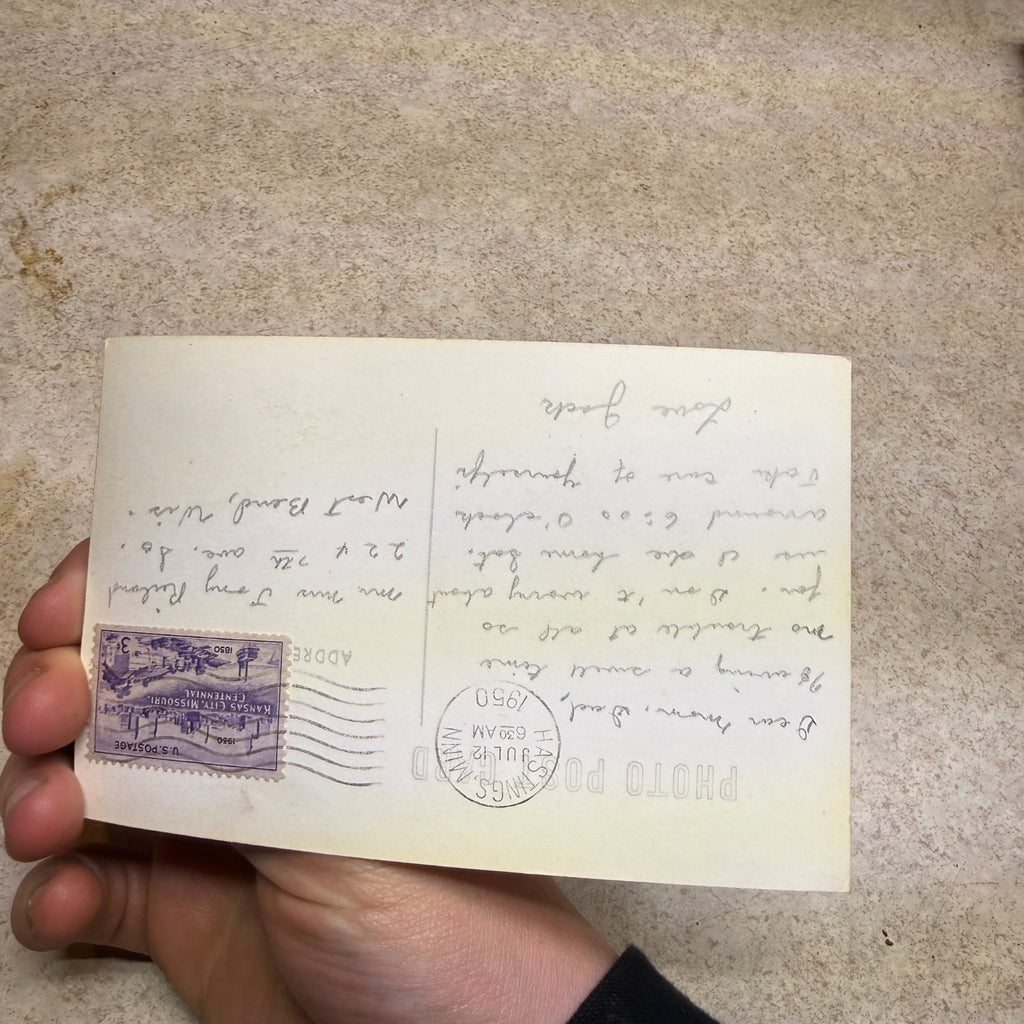 PHOTO POST CARD
HASTINGS, MINN.
JUL 12
630 AM
1950
U.S. POSTAGE
1950
KANSAS CITY, MISSOURI,
CENTENNIAL
1850
3¢
ADDRE
Dear Mom, Dad,
Having a swell time
no trouble at all so
far. Don't worry about
us I'll be home Sat.
arround 6:00 O'clock
Take care of yourself.
Love Jack
Mr Mrs Tony
224 7th ave. So.
West Bend, Wis.